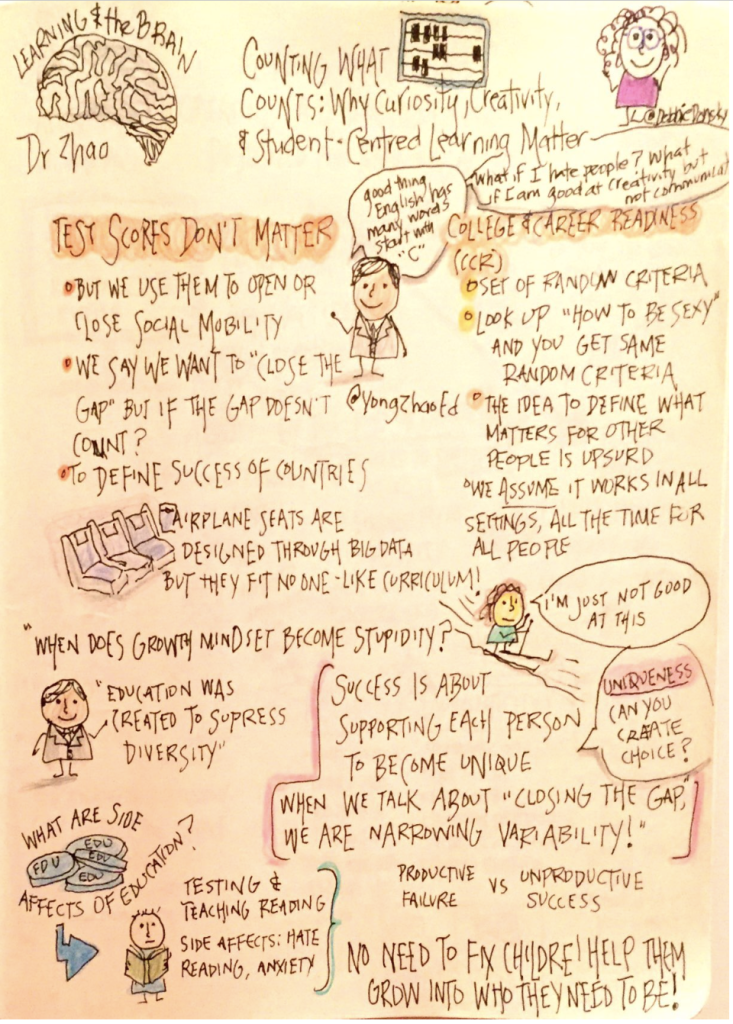 LEARNING & the BRAIN
Dr Zhao
COUNTING WHAT
COUNTS: Why Curiosity, Creativity,
& Student-Centred Learning Matter
@DebbieDonsky
good thing
English has
many words
start with
"C"
What if I hate people? What
if I am good at creativity but
not communicat
TEST SCORES DON'T MATTER
BUT WE USE THEM TO OPEN OR
CLOSE SOCIAL MOBILITY
WE SAY WE WANT TO "CLOSE THE
GAP" BUT IF THE GAP DOESN'T
COUNT?
TO DEFINE SUCCESS OF COUNTRIES
@YongZhaoEd
COLLEGE & CAREER READINESS
(CCR)
SET OF RANDOM CRITERIA
LOOK UP "HOW TO BE SEXY"
AND YOU GET SAME
RANDOM CRITERIA
THE IDEA TO DEFINE WHAT
MATTERS FOR OTHER
PEOPLE IS UPSURD
WE ASSUME IT WORKS IN ALL
SETTINGS, ALL THE TIME FOR
ALL PEOPLE
AIRPLANE SEATS ARE
DESIGNED THROUGH BIG DATA
BUT THEY FIT NO ONE - LIKE CURRICULUM!
"WHEN DOES GROWTH MINDSET BECOME STUPIDITY?
I'M JUST NOT GOOD
AT THIS
"EDUCATION WAS
CREATED TO SUPRESS
DIVERSITY"
SUCCESS IS ABOUT
SUPPORTING EACH PERSON
TO BECOME UNIQUE
UNIQUENESS
CAN YOU
CREATE
CHOICE?
WHEN WE TALK ABOUT "CLOSING THE GAP,"
WE ARE NARROWING VARIABILITY!"
WHAT ARE SIDE
AFFECTS OF EDUCATION?
EDU
EDU
EDU
EDU
TESTING &
TEACHING READING
SIDE AFFECTS: HATE
READING, ANXIETY
PRODUCTIVE
FAILURE
VS
UNPRODUCTIVE
SUCCESS
NO NEED TO FIX CHILDRE! HELP THEM
GROW INTO WHO THEY NEED TO BE!